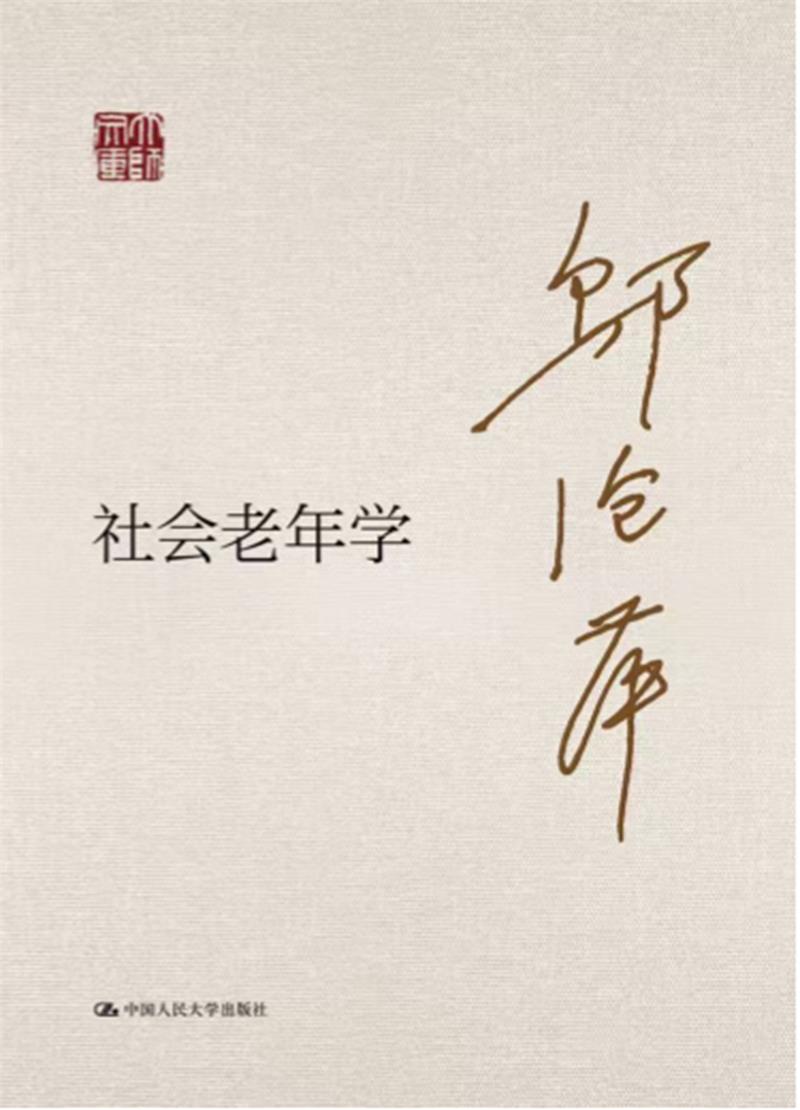 大师
宗重
邬沧萍
社会老年学
中国人民大学出版社